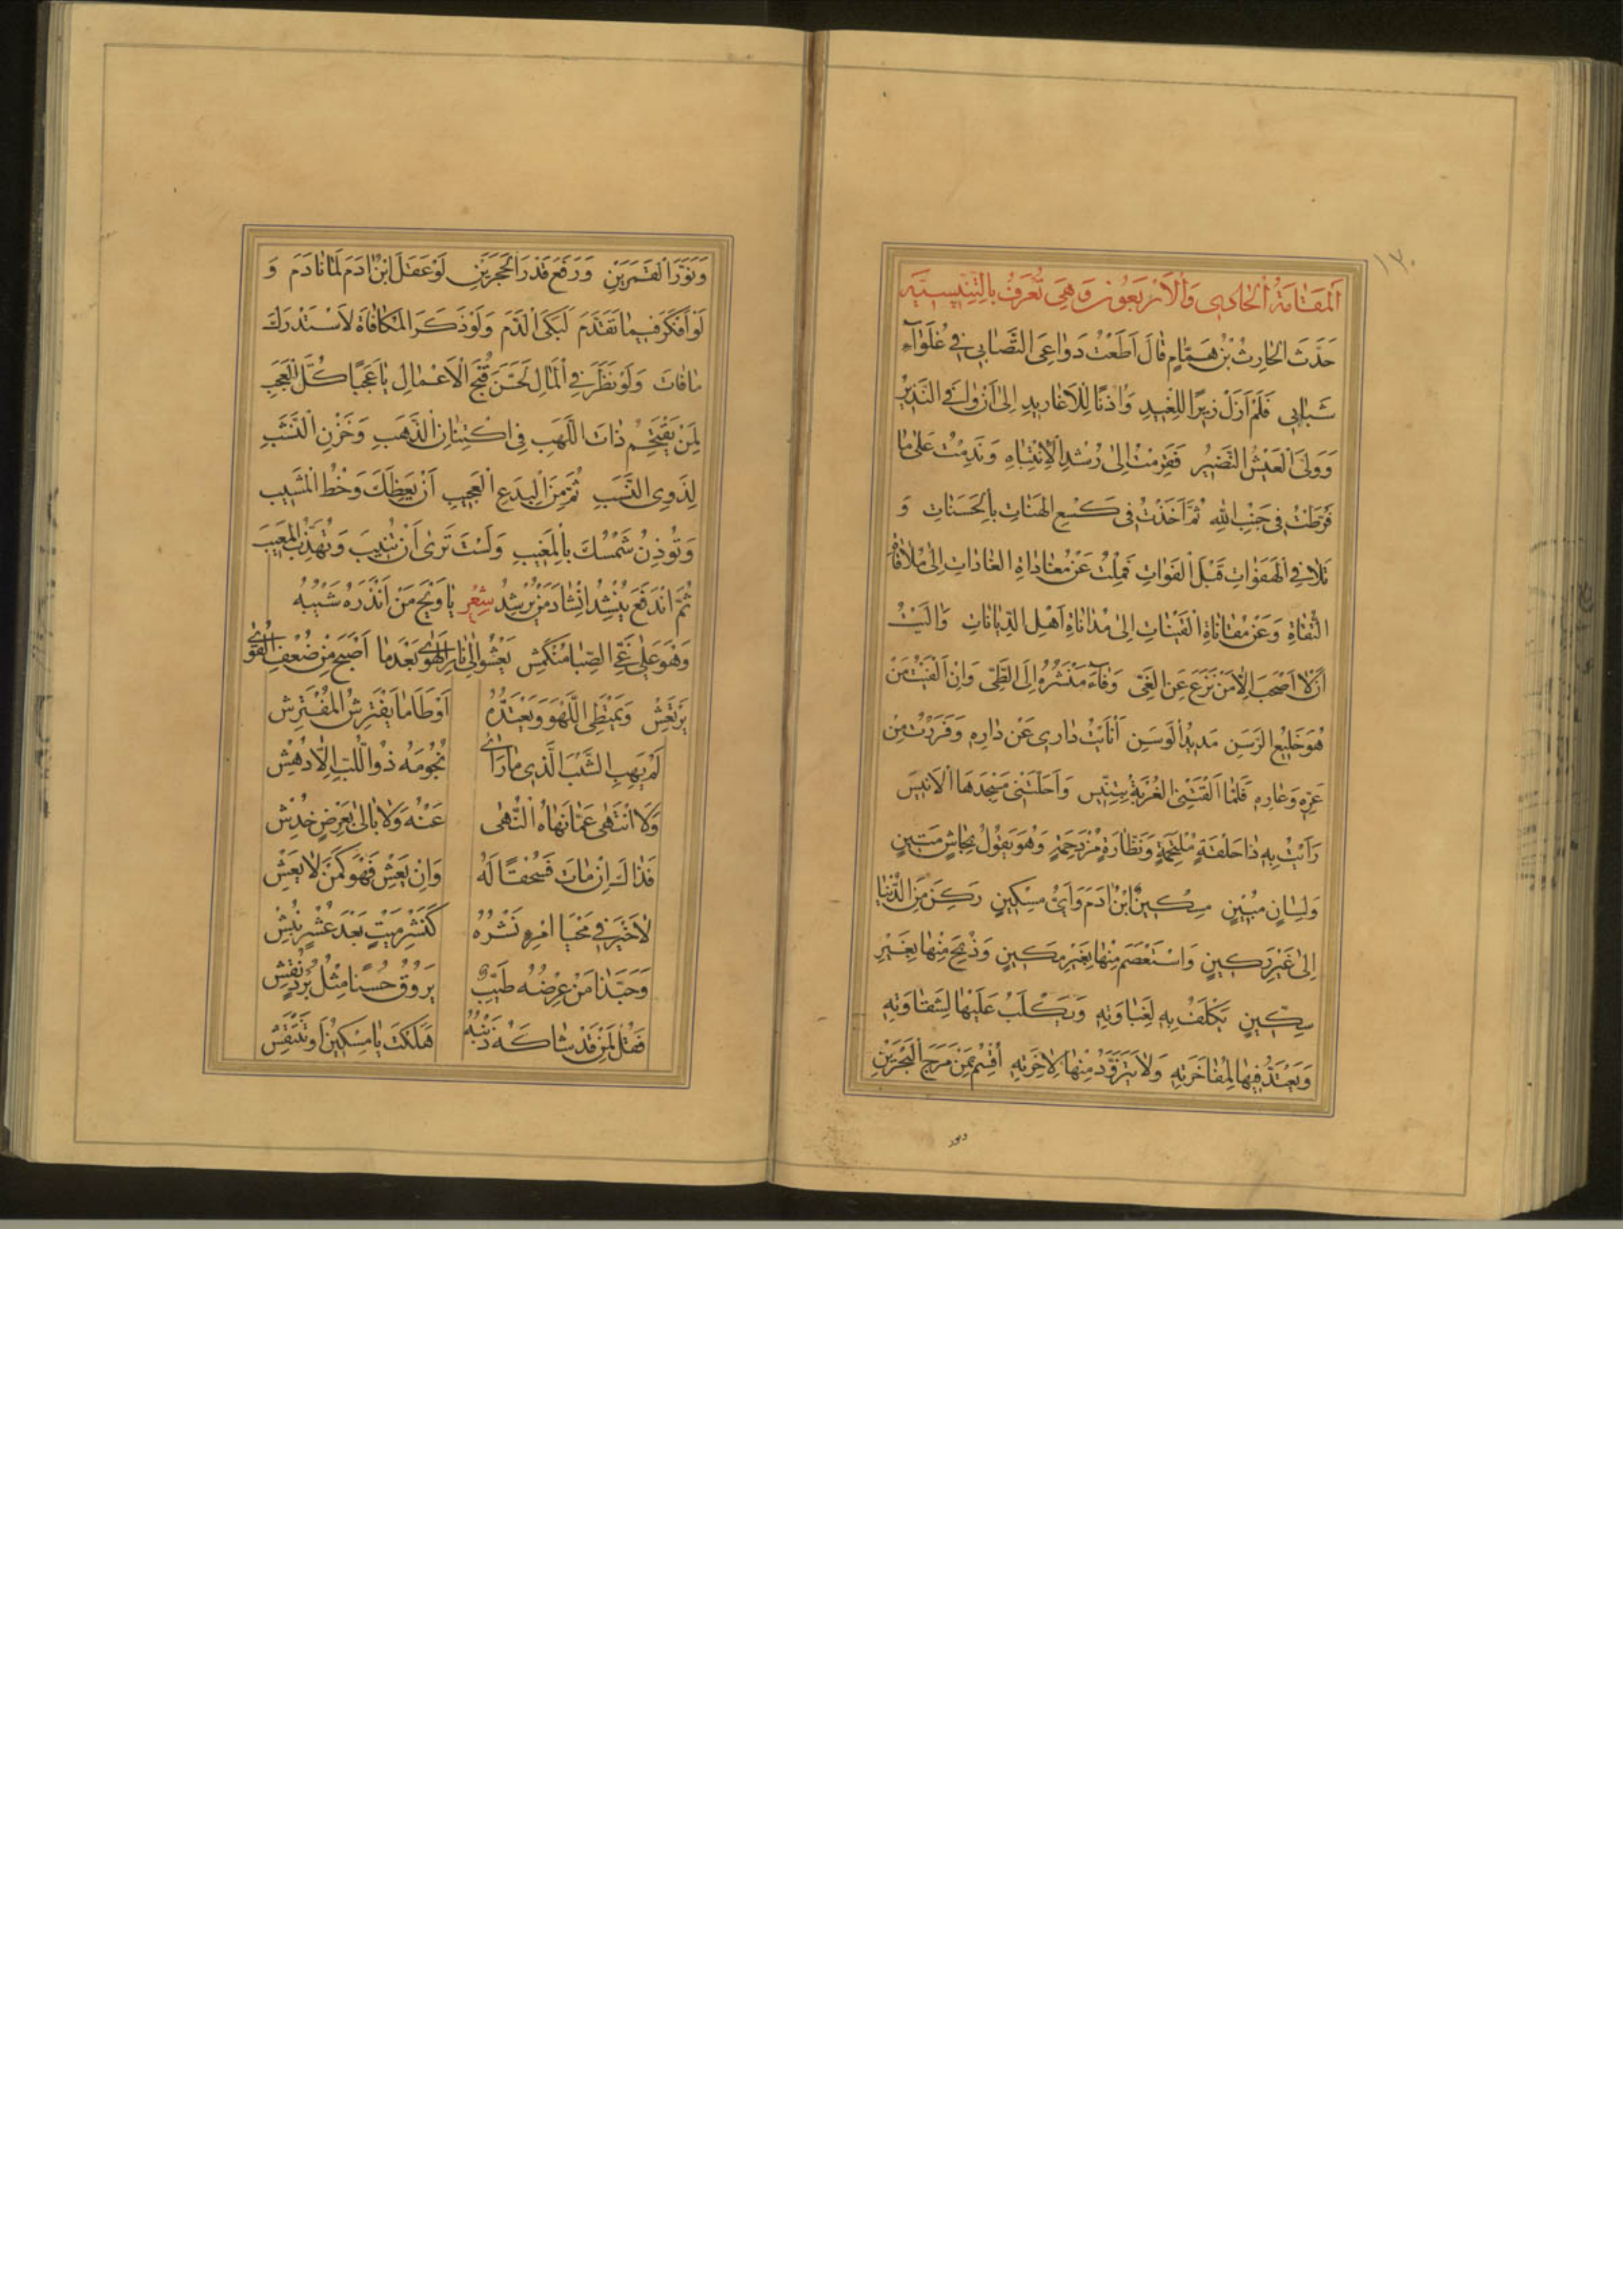 ١٧٠
اَلْمَقَامَةُ الْحَادِي وَالْاَرْبَعُونَ وَهِيَ تُعْرَفُ بِالتِّنِّيسِيَّةِ
حَدَّثَ الْحَارِثُ بْنُ هَمَّامٍ قَالَ اَطَعْتُ دَوَاعِيَ التَّصَابِي فِي غُلَوَآءِ
شَبَابِي فَلَمْ اَزَلْ زِيرًا لِلْغِيدِ وَاُذُنًا لِلْاَغَارِيدِ اِلَى اَنْ وَافَى النَّذِيرُ
وَوَلَّى الْعَيْشُ النَّضِيرُ فَقَرِمْتُ اِلَى رُشْدِ الْاِنْتِبَاهِ وَنَدِمْتُ عَلَى مَا
فَرَّطْتُ فِي جَنْبِ اللهِ ثُمَّ اَخَذْتُ فِي كَسْعِ الْهَنَاتِ بِالْحَسَنَاتِ وَ
تَلَافِي الْهَفَوَاتِ قَبْلَ الْفَوَاتِ فَمِلْتُ عَنْ مُغَادَاةِ الْغَادَاتِ اِلَى مُلَاقَاةِ
التُّقَاةِ وَعَنْ مُقَانَاةِ الْقَيْنَاتِ اِلَى مُدَانَاةِ اَهْلِ الدِّيَانَاتِ وَاٰلَيْتُ
اَنْ لَا اَصْحَبَ اِلَّا مَنْ نَزَعَ عَنِ الْغَيِّ وَفَآءَ مَنْشَرُهُ اِلَى الطَّيِّ وَاِنْ اَلْفَيْتُ مَنْ
هُوَ خَلِيعُ الرَّسَنِ مَدِيدُ الْوَسَنِ اَنْأَيْتُ دَارِي عَنْ دَارِهِ وَفَرَرْتُ مِنْ
عَرِّهِ وَعَارِهِ فَلَمَّا اَلْقَتْنِي الْغُرْبَةُ بِتِنِّيسَ وَاَحَلَّتْنِي مَسْجِدَهَا الْاَنِيسَ
رَاَيْتُ بِهِ ذَا حَلْقَةٍ مُلْتَحِمَةٍ وَنَظَّارَةٍ مُزْدَحِمَةٍ وَهُوَ يَقُولُ بِجَاشٍ مَتِينٍ
وَلِسَانٍ مُبِينٍ مِسْكِينٌ ابْنُ اٰدَمَ وَاَيُّ مِسْكِينٍ رَكَنَ مِنَ الدُّنْيَا
اِلَى غَيْرِ رَكِينٍ وَاسْتَعْصَمَ مِنْهَا بِغَيْرِ مَكِينٍ وَذُبِحَ مِنْهَا بِغَيْرِ
سِكِّينٍ يَكْلَفُ بِهِ لِغَبَاوَتِهِ وَيَكْلَبُ عَلَيْهَا لِشَقَاوَتِهِ
وَيَعْتَدُّ فِيهَا لِمُفَاخَرَتِهِ وَلَا يَتَزَوَّدُ مِنْهَا لِاٰخِرَتِهِ اُقْسِمُ بِمَنْ مَرَجَ الْبَحْرَيْنِ
ونور
وَنَوَّرَ الْقَمَرَيْنِ وَرَفَعَ قَدْرَ الْحَجَرَيْنِ لَوْ عَقَلَ ابْنُ اٰدَمَ لَمَا نَادَمَ وَ
لَوْ اَفْكَرَ فِيمَا تَقَدَّمَ لَبَكَى الدَّمَ وَلَوْ ذَكَرَ الْمُكَافَاةَ لَاسْتَدْرَكَ
مَا فَاتَ وَلَوْ نَظَرَ فِي الْمَاٰلِ لَحَسَّنَ قُبْحَ الْاَعْمَالِ يَا عَجَبًا كُلَّ الْعَجَبِ
لِمَنْ يَقْتَحِمُ ذَاتَ اللَّهَبِ فِي اكْتِنَازِ الذَّهَبِ وَخَزْنِ النَّشَبِ
لِذَوِي النَّسَبِ ثُمَّ مِنَ الْبِدَعِ الْعَجِيبِ اَنْ يَعِظَكَ وَخْطُ الْمَشِيبِ
وَتُؤْذِنَ شَمْسُكَ بِالْمَغِيبِ وَلَسْتَ تَرَى اَنْ تُنِيبَ وَتُهَذِّبَ الْمَعِيبَ
ثُمَّ انْدَفَعَ يُنْشِدُ اِنْشَادَ مَنْ يُرْشِدُ شِعْر يَا وَيْحَ مَنْ اَنْذَرَهُ شَيْبُهُ
وَهْوَ عَلَى غَيِّ الصِّبَا مُنْكَمِشْ يَعْشُو اِلَى نَارِ الْهَوَى بَعْدَمَا اَصْبَحَ مِنْ ضُعْفِ الْقُوَى
يَرْتَعِشْ وَيَمْتَطِي اللَّهْوَ وَيَعْتَدُّهُ اَوْطَأَ مَا يَفْتَرِشُ الْمُفْتَرِشْ
لَمْ يَهَبِ الشَّيْبَ الَّذِي مَا رَاَى نُجُومَهُ ذُو اللُّبِّ اِلَّا دُهِشْ
وَلَا انْتَهَى عَمَّا نَهَاهُ النُّهَى عَنْهُ وَلَا بَالَى بِعِرْضٍ خُدِشْ
فَذَاكَ اِنْ مَاتَ فَسُحْقًا لَهُ وَاِنْ يَعِشْ فَهْوَ كَمَنْ لَا يَعِشْ
لَا خَيْرَ فِي مَحْيَا امْرِءٍ نَشْرُهُ كَنَشْرِ مَيْتٍ بَعْدَ عَشْرٍ نُبِشْ
وَحَبَّذَا مَنْ عِرْضُهُ طَيِّبٌ يَرُوقُ حُسْنًا مِثْلُ بُرْدٍ نُقِشْ
فَقُلْ لِمَنْ قَدْ شَاكَهُ ذَنْبُهُ هَلَكْتَ يَا مِسْكِينُ اَوْ تَنْتَقِشْ